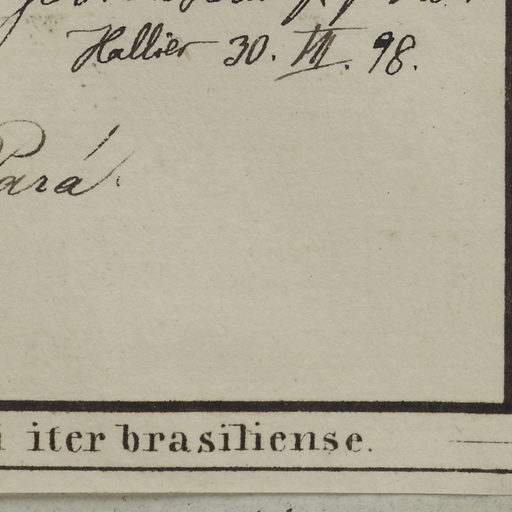 Hallier 30. III. 98.
Pará.
iter brasiliense.